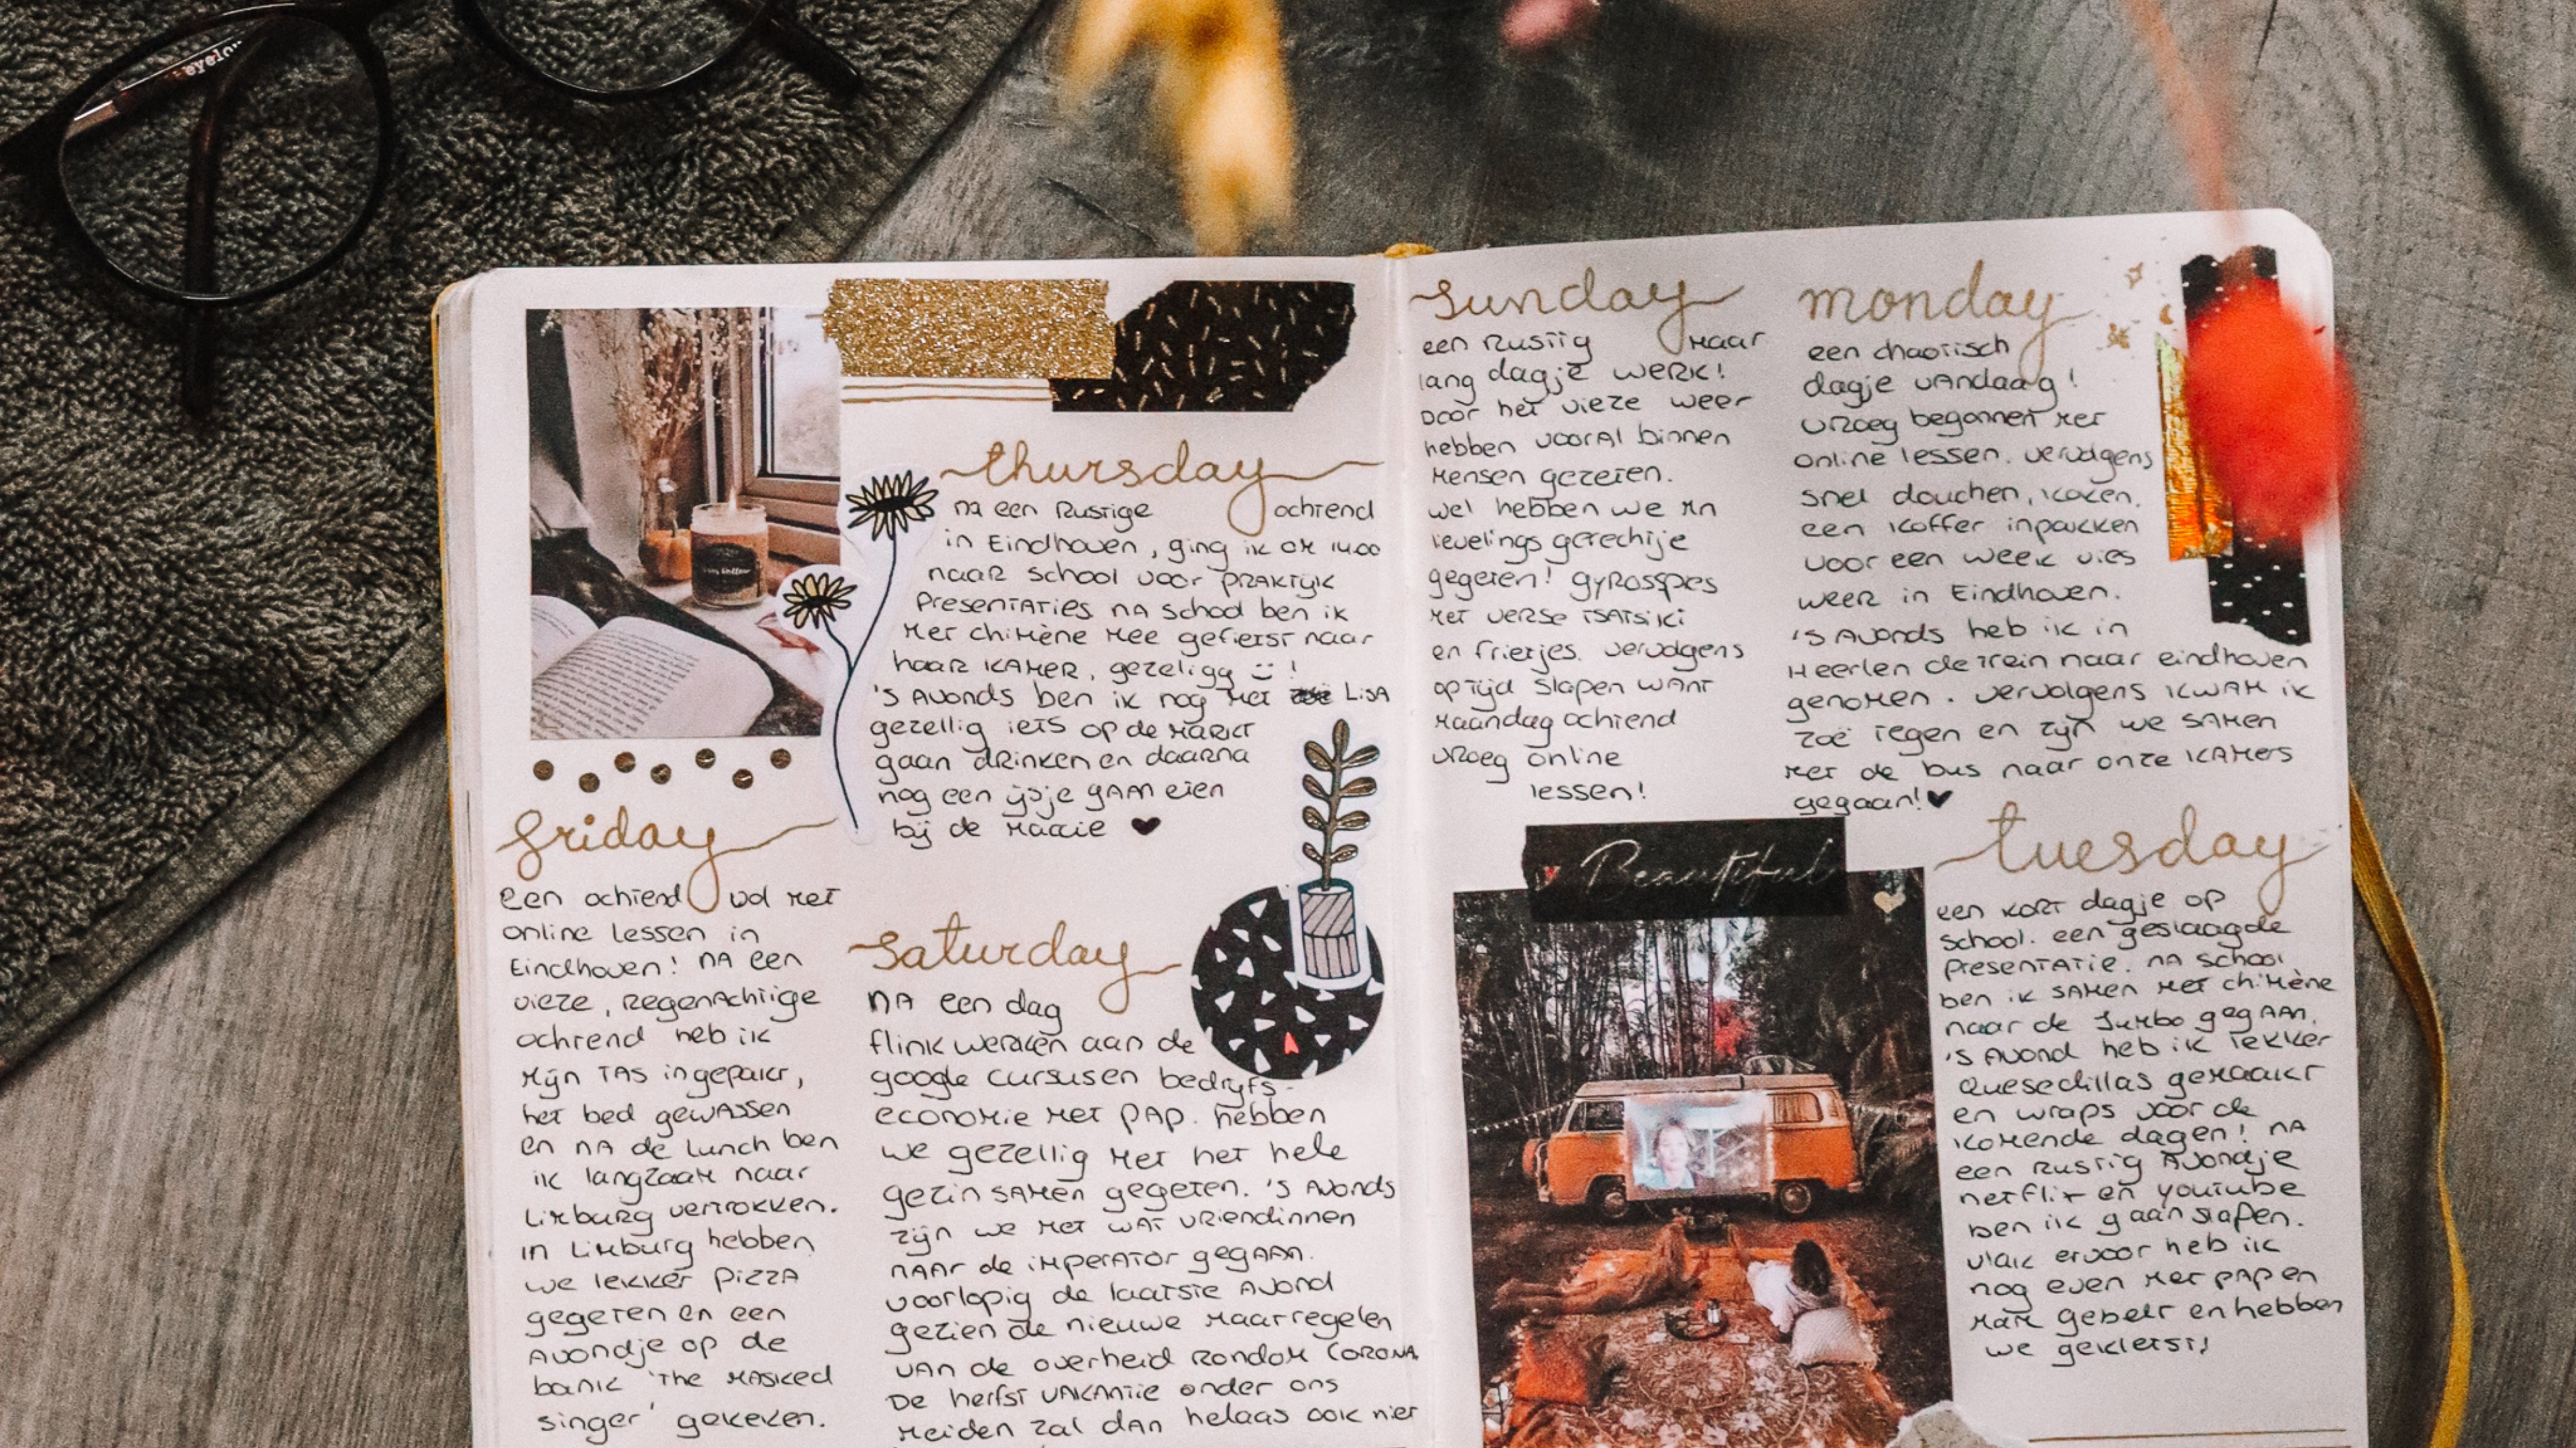 eyelov
thursday
na een rustige ochtend
in Eindhoven, ging ik om 14.00
naar school voor praktijk
presentaties na school ben ik
met chimène mee gefietst naar
haar kamer, gezeligg :) !
's avonds ben ik nog met Lisa
gezellig iets op de markt
gaan drinken en daarna
nog een ijsje gaan eten
bij de
friday
een ochtend vol met
online lessen in
Eindhoven! na een
vieze, regenachtige
ochtend heb ik
mijn tas ingepakt,
het bed gewassen
en na de lunch ben
ik langzaam naar
Limburg vertrokken.
in Limburg hebben
we lekker pizza
gegeten en een
avondje op de
bank 'the masked
singer' gekeken.
saturday
na een dag
flink werken aan de
google cursusen bedrijfs-
economie met pap. hebben
we gezellig met het hele
gezin samen gegeten. 's avonds
zijn we met wat vriendinnen
naar de imperator gegaan.
voorlopig de laatste avond
gezien de nieuwe maatregelen
van de overheid rondom corona.
De herfst vakantie onder ons
meiden zal dan helaas ook niet
sunday
een rustig maar
lang dagje werk!
Door het vieze weer
hebben vooral binnen
mensen gezeten.
wel hebben we mn
levelings gerechtje
gegeten! gyrosspies
met verse tsatsiki
en frietjes. vervolgens
op tijd slapen want
maandag ochtend
vroeg online
lessen!
monday
een chaotisch
dagje vandaag!
vroeg begonnen met
online lessen. vervolgens
snel douchen, koken,
een koffer inpakken
voor een week vies
weer in Eindhoven.
's avonds heb ik in
Heerlen de trein naar eindhoven
genomen. vervolgens kwam ik
zoë tegen en zijn we samen
met de bus naar onze kamers
gegaan! ♥
Beautiful
tuesday
een kort dagje op
school. een geslaagde
presentatie. na school
ben ik samen met chimène
naar de Jumbo gegaan.
's avond heb ik lekker
quesedillas gemaakt
en wraps voor de
komende dagen! na
een rustig avondje
netflix en youtube
ben ik gaan slapen.
vlak ervoor heb ik
nog even met pap en
mam gebelt en hebben
we gekletst!